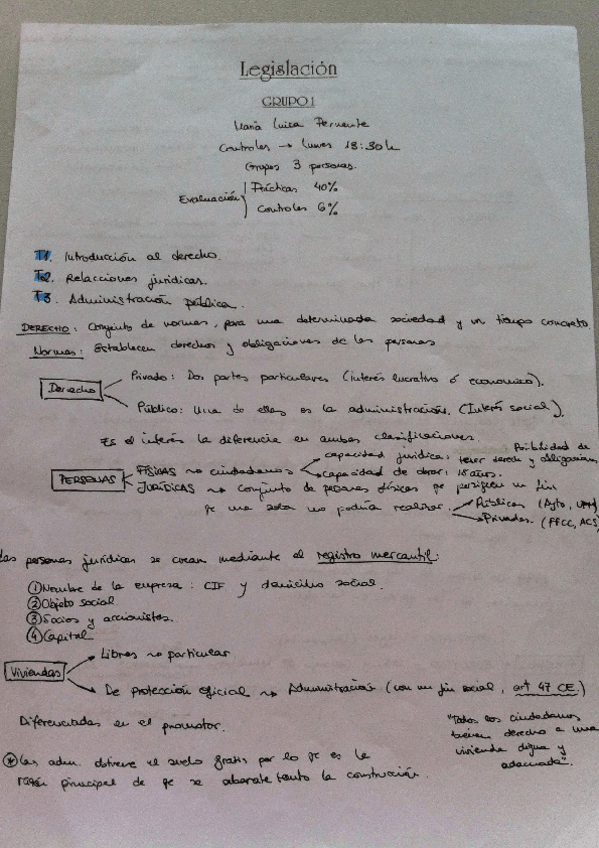 Legislación
GRUPO 1
María Luisa
Controles → lunes 18:30h
Grupos 3 personas.
Evaluación Prácticas 40%
Controles 6%
T1. Introducción al derecho.
T2. Relacciones jurídicas.
T3. Administración pública.
DERECHO: Conjunto de normas, para una determinada sociedad y un tiempo concreto.
Normas: Establecen derechos y obligaciones de las personas
Derecho
Privado: Dos partes particulares (interés lucrativo ó económico).
Público: Una de ellas es la administración. (Interés social).
Es el interés la diferencia en ambas clasificaciones.
PERSONAS
FÍSICAS → ciudadanos
capacidad jurídica: Posibilidad de tener derech y obligaciones
capacidad de obrar: 18 años.
JURÍDICAS → conjunto de personas físicas qe persiguen un fin
qe una sola no podría realizar
Públicas (Ayto,
Privadas (FFCC, ACS)
las personas jurídicas se crean mediante el registro mercantil:
① Nombre de la empresa: CIF y domicilio social.
② Objeto social
③ Socios y accionistas.
④ Capital
Viviendas
Libres → particular
De protección oficial → Administración (con un fin social, art 47 CE.)
Diferenciadas en el promotor.
"Todos los ciudadanos
tienen derecho a una
vivienda digna y
adecuada".
* Las adm. obtiene el suelo gratis por lo qe es la
razón principal de qe se abarate tanto la construcción.